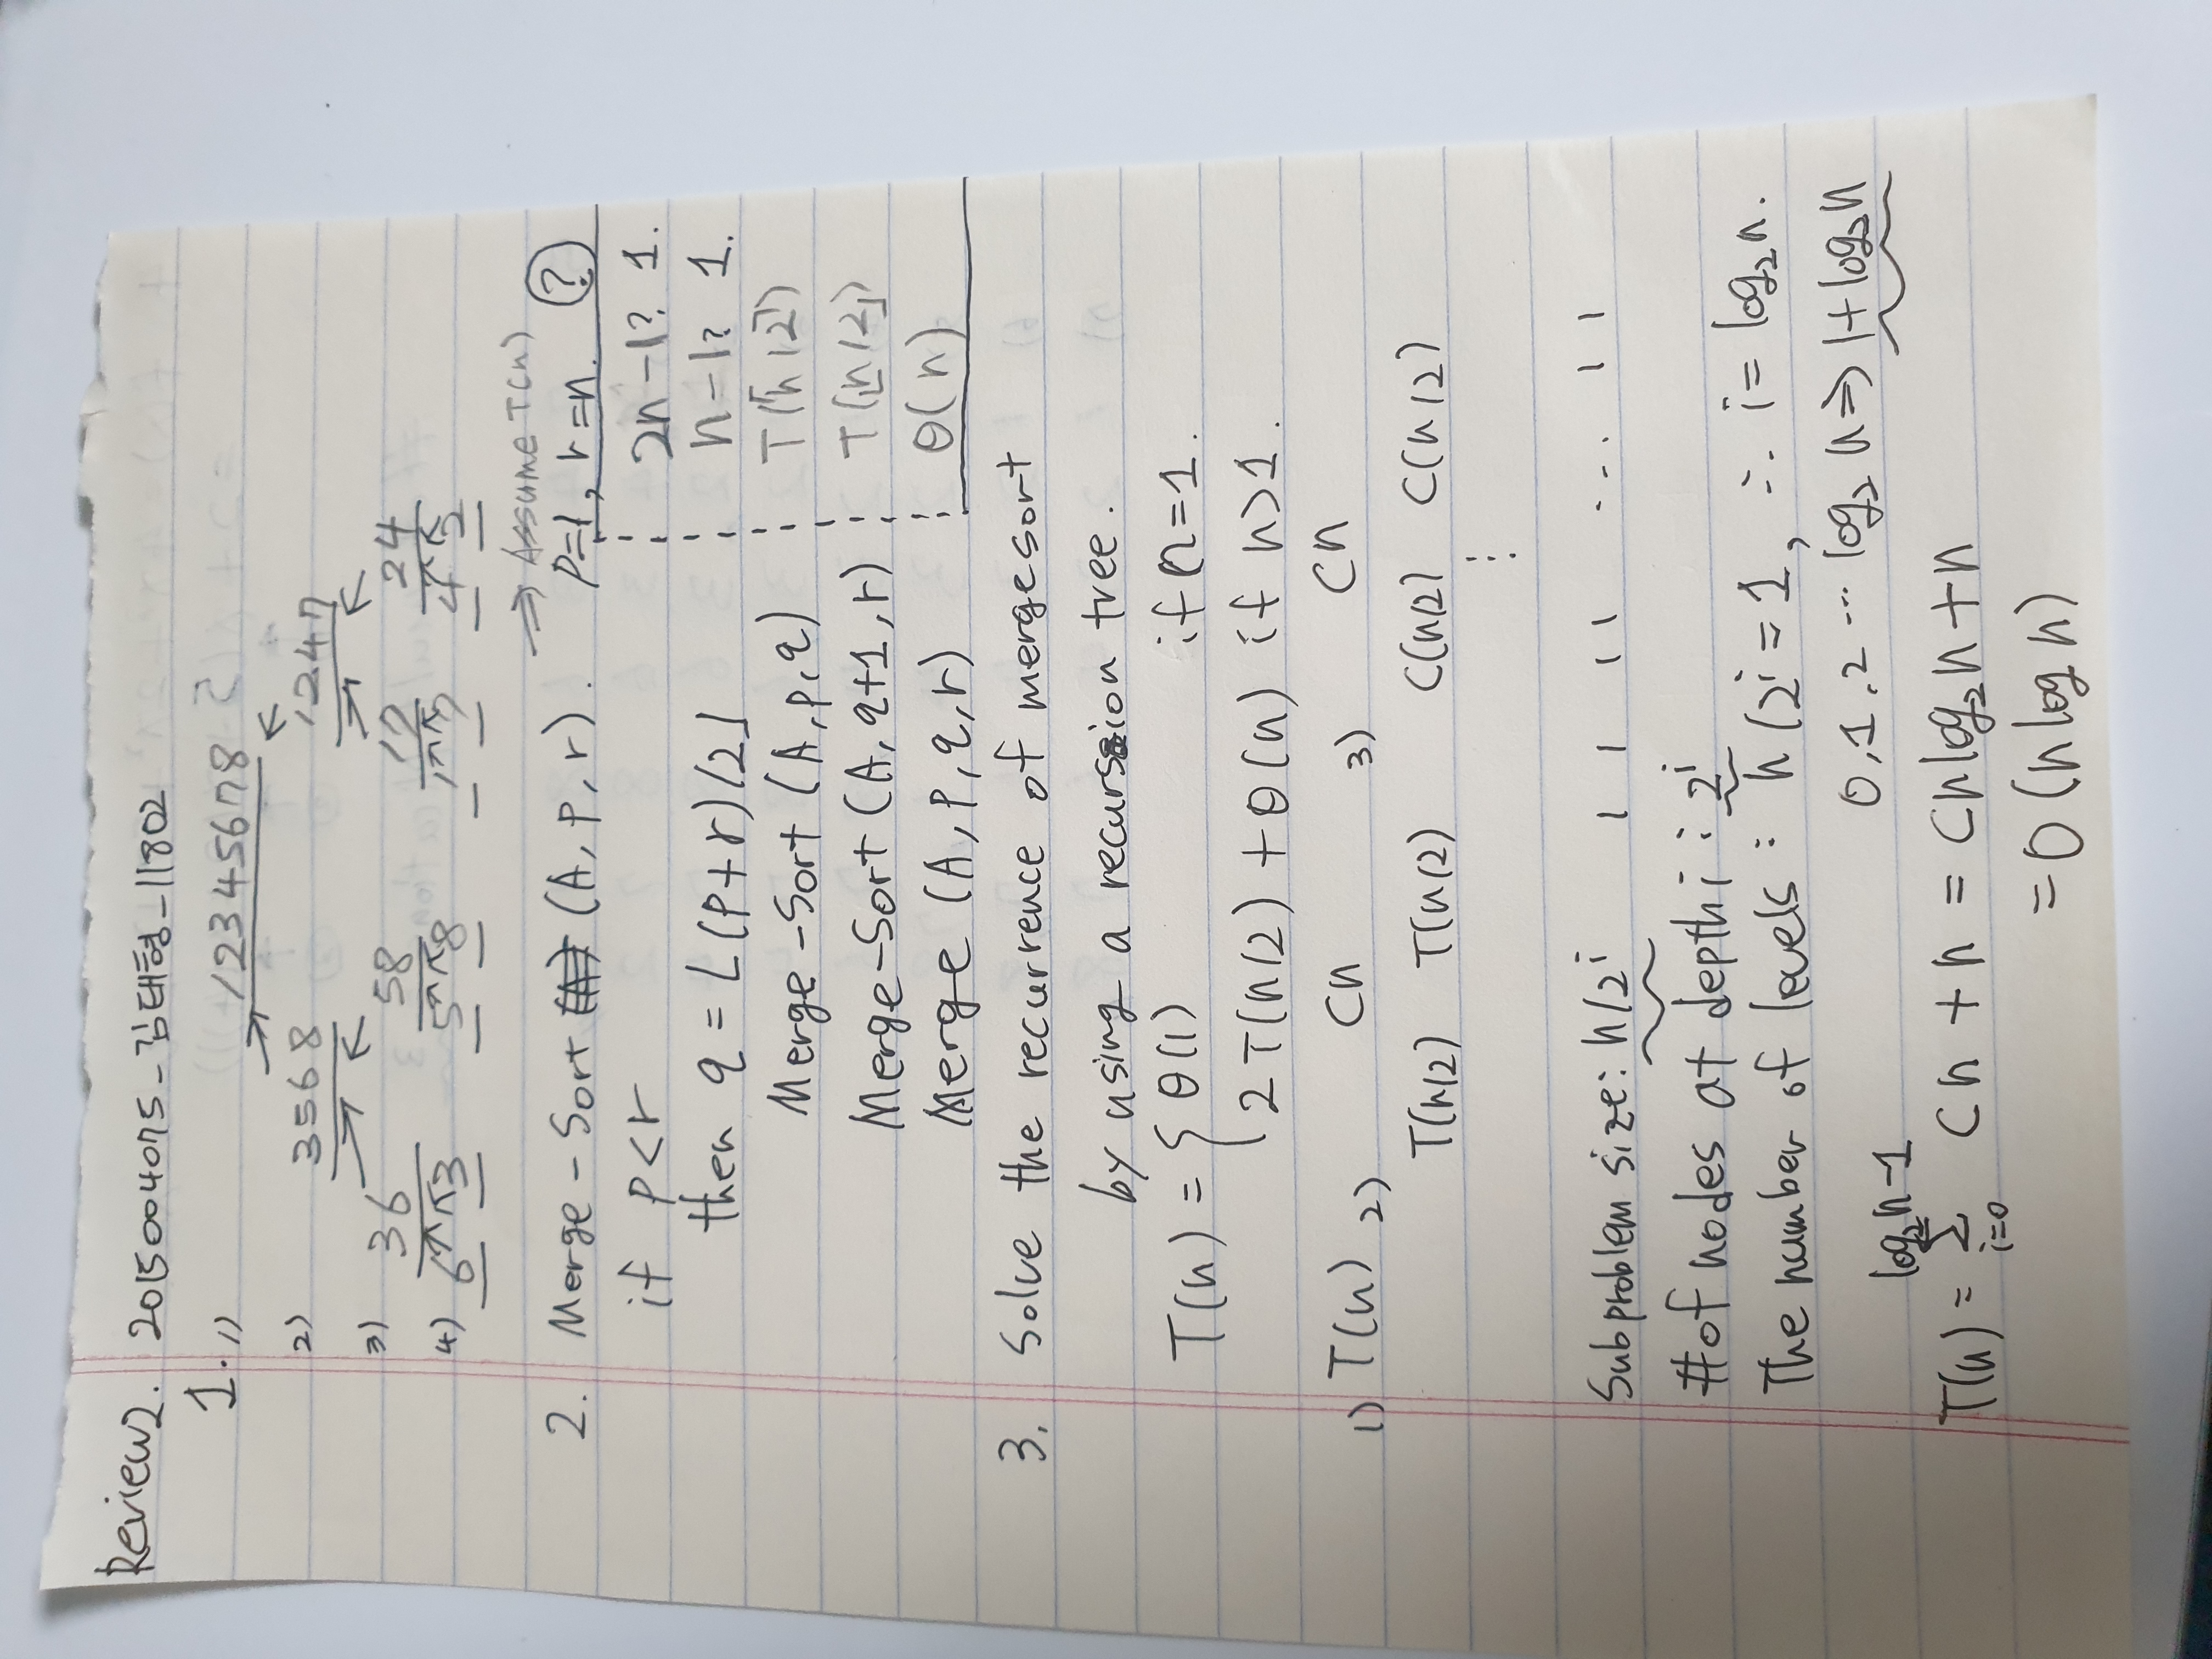 Review2. 2015004075-김태형-11802
1. 1) 12345678
2) 3568 1247
3) 36 58 17 24
4) 6 3 5 8 1 7 4 2
⇒ Assume T(n)
2. Merge-Sort (A, p, r). p=1, r=n. ?
if p<r 2n-1? 1.
then q = ⌊(p+r)/2⌋ n-1? 1.
Merge-Sort (A, p, q) T(⌈n/2⌉)
Merge-Sort (A, q+1, r) T(⌊n/2⌋)
Merge (A, p, q, r) θ(n)
3. Solve the recurrence of mergesort
by using a recursion tree.
T(n) = { θ(1) if n=1.
2T(n/2) + θ(n) if n>1.
1) T(n) 2) Cn 3) Cn
T(n/2) T(n/2) C(n/2) C(n/2)
⋮
Subproblem size: n/2^i 1 1 1 1 ... 1 1
# of nodes at depth i : 2^i
The number of levels : n/2^i = 1, ∴ i = log₂n.
0, 1, 2 ... log₂ n ⇒ 1+log₂n
log₂n-1
T(n) = Σ Cn + n = Cnlog₂n + n
i=0
= O(n log n)